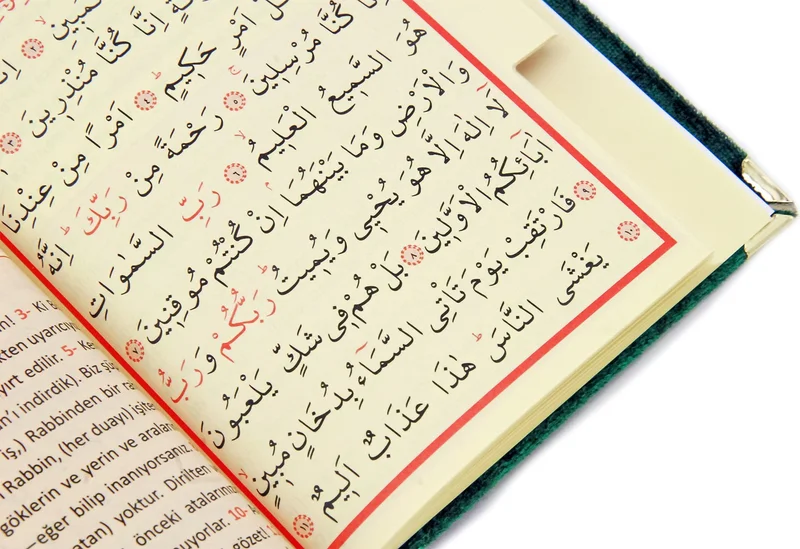 مُبِينٍ
اِنَّا كُنَّا مُنْذِرِينَ ٣
اَمْرٍ حَكِيمٍ ٤ اَمْراً مِنْ عِنْدِنَا
كُنَّا مُرْسِلِينَ ٥ رَحْمَةً مِنْ رَبِّكَ اِنَّهُ
هُوَ السَّمِيعُ الْعَلِيمُ ٦ رَبِّ السَّمٰوَاتِ
وَالْاَرْضِ وَمَا بَيْنَهُمَا اِنْ كُنْتُمْ مُوقِنِينَ ٧
لَٓا اِلٰهَ اِلَّا هُوَ يُحْيِى وَيُمِيتُ رَبُّكُمْ وَرَبُّ
اٰبَٓائِكُمُ الْاَوَّلِينَ ٨ بَلْ هُمْ فِى شَكٍّ يَلْعَبُونَ
٩ فَارْتَقِبْ يَوْمَ تَأْتِى السَّمَٓاءُ بِدُخَانٍ مُبِينٍ
١٠ يَغْشَى النَّاسَ هٰذَا عَذَابٌ اَلِيمٌ ١١
3- Ki
kten uyarıcıy
yırt edilir. 5- Ke
n'ı indirdik). Biz şü
iş,) Rabbinden bir ra
Rabbin, (her duayı) işite
göklerin ve yerin ve aralar
—eğer bilip inanıyorsanız.
atan) yoktur. Dirilten
önceki atalarınız
nuyorlar. 10-
gözet!